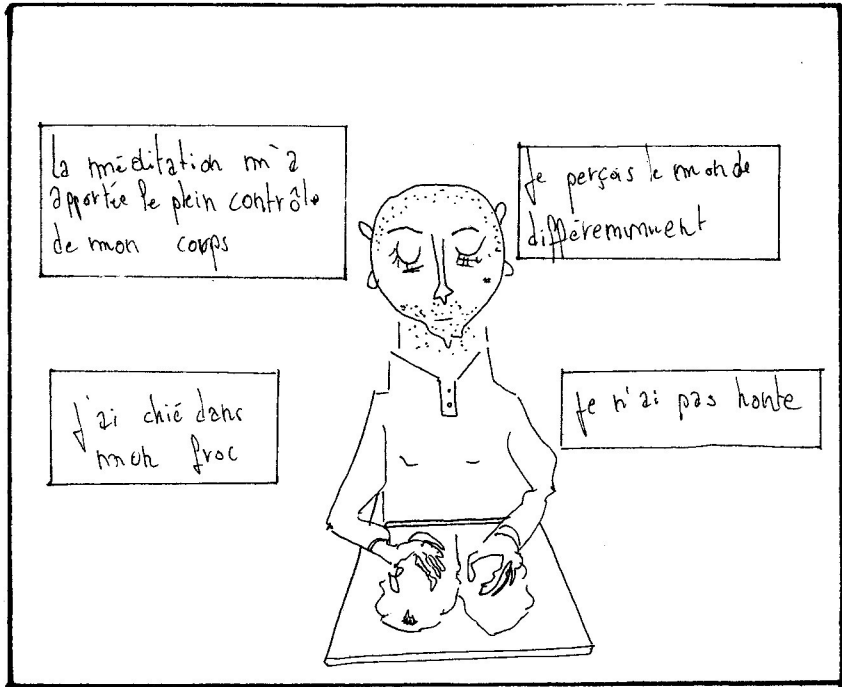 la méditation m'a
apportée le plein contrôle
de mon corps
Je perçois le monde
différemmment
J'ai chié dans
mon froc
Je n'ai pas honte